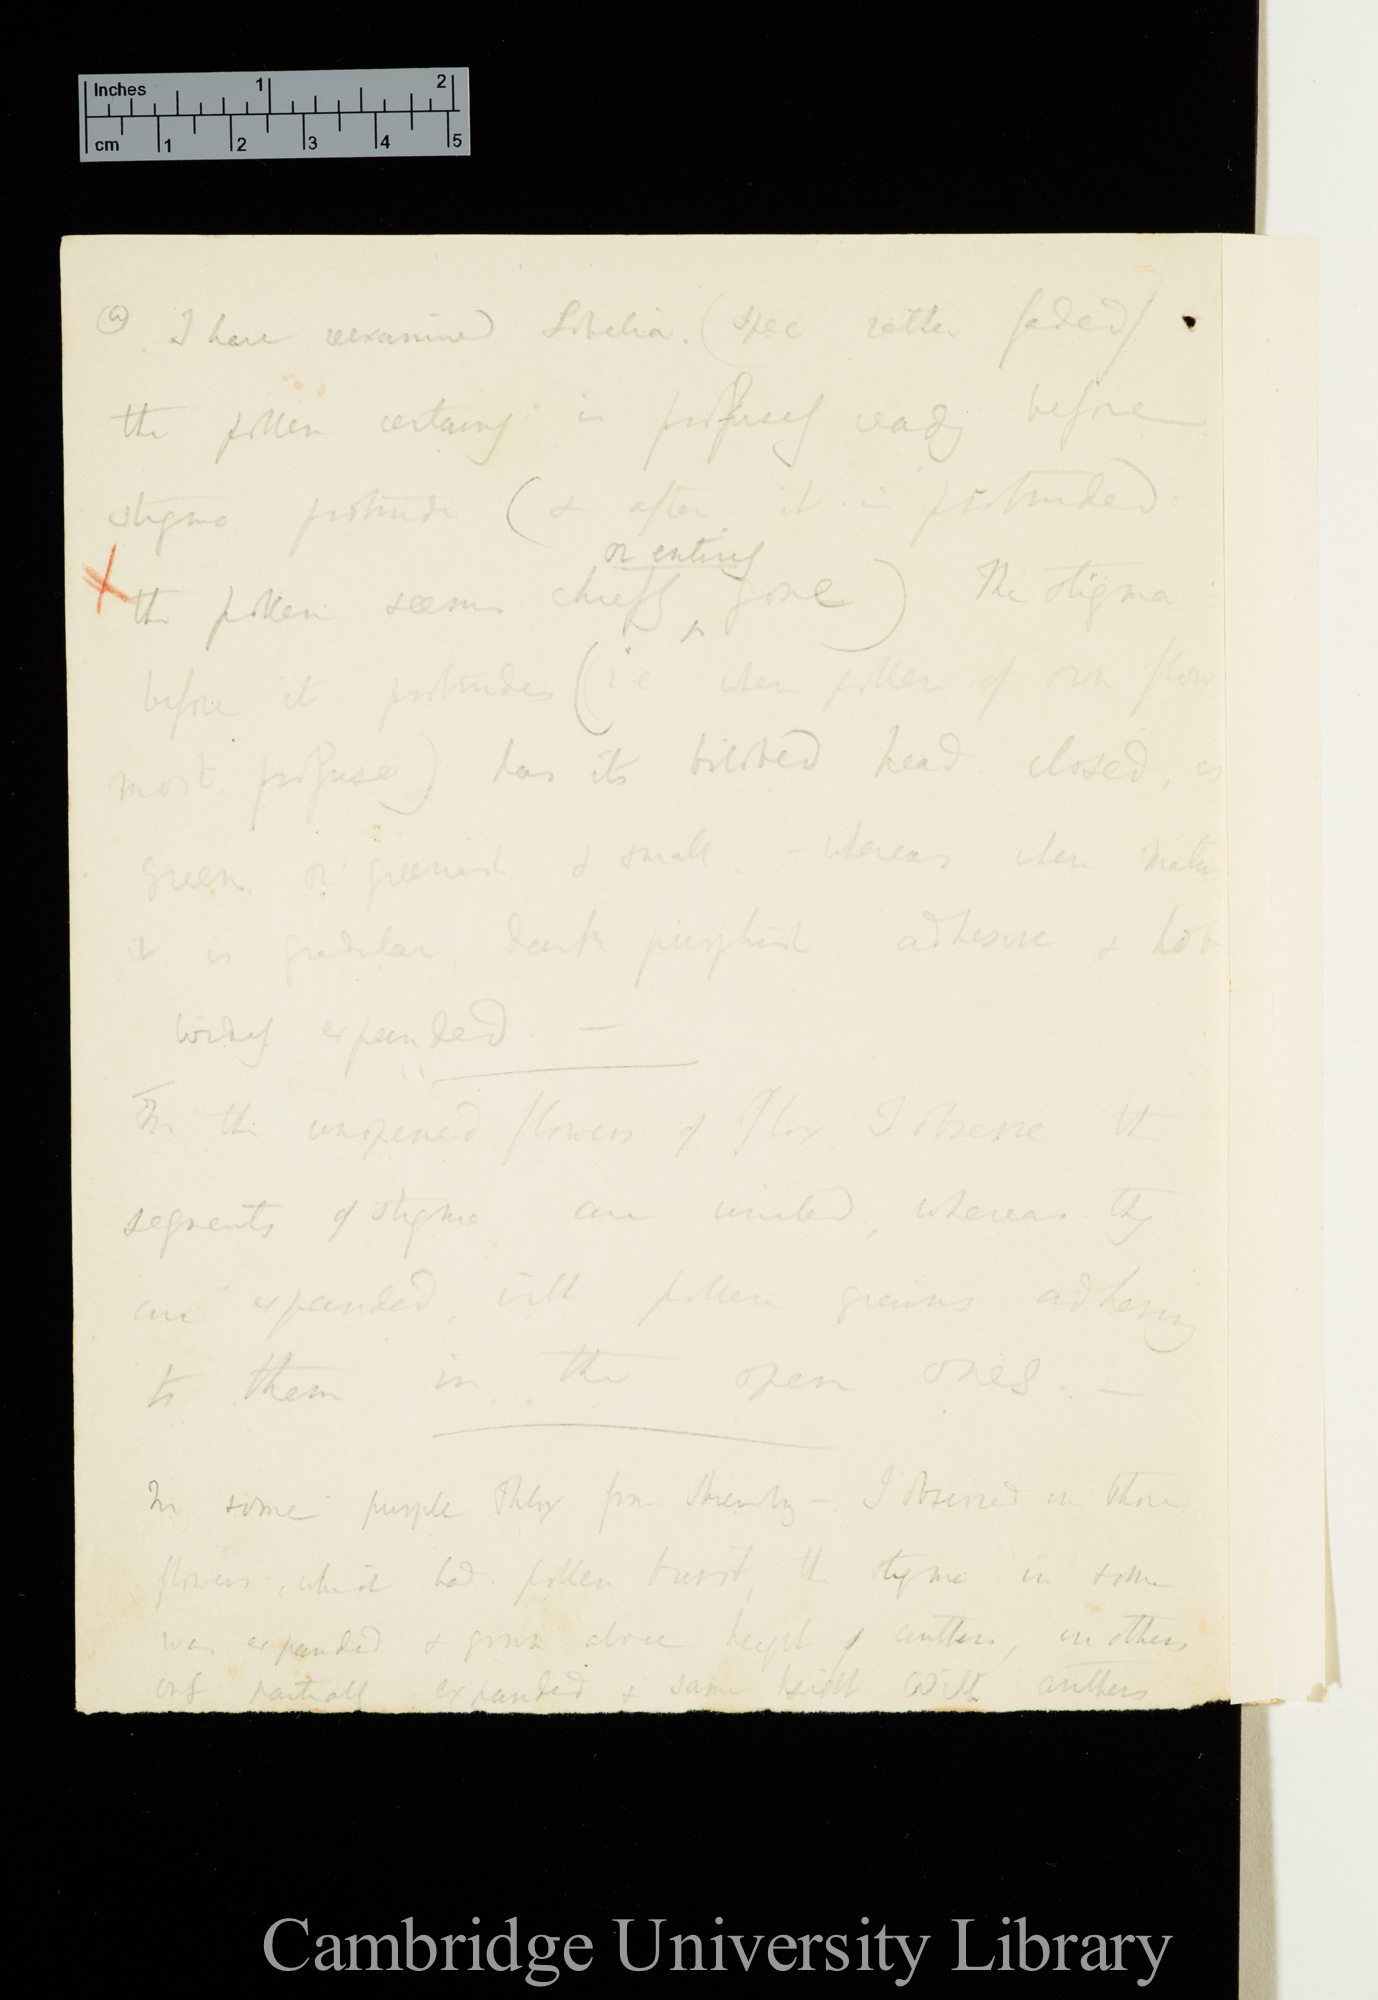 Inches 1 2
cm 1 2 3 4 5
(a) I have reexamined Lobelia. (spec rather faded)
the pollen certainly is profusely ready before
stigma protrude (& after it is protruded
or entirely
the pollen seems chiefly gone) The stigma
before it protrudes (ie when pollen of own flow
most profuse) has its bilobed head closed, is
green or greenish & small – whereas when matu
it is dark purplish adhesive &
widely expanded. —
In the unopened flowers of Phlox, I observe the
segments of stigma are united, whereas they
are expanded, with pollen grains adhering
to them in the open ones. —
In some purple Phlox from – I observed in those
flowers, which had pollen burst, the stigma in some
was expanded & grown above height of anthers, in others
only partially expanded & same height with anthers
Cambridge University Library